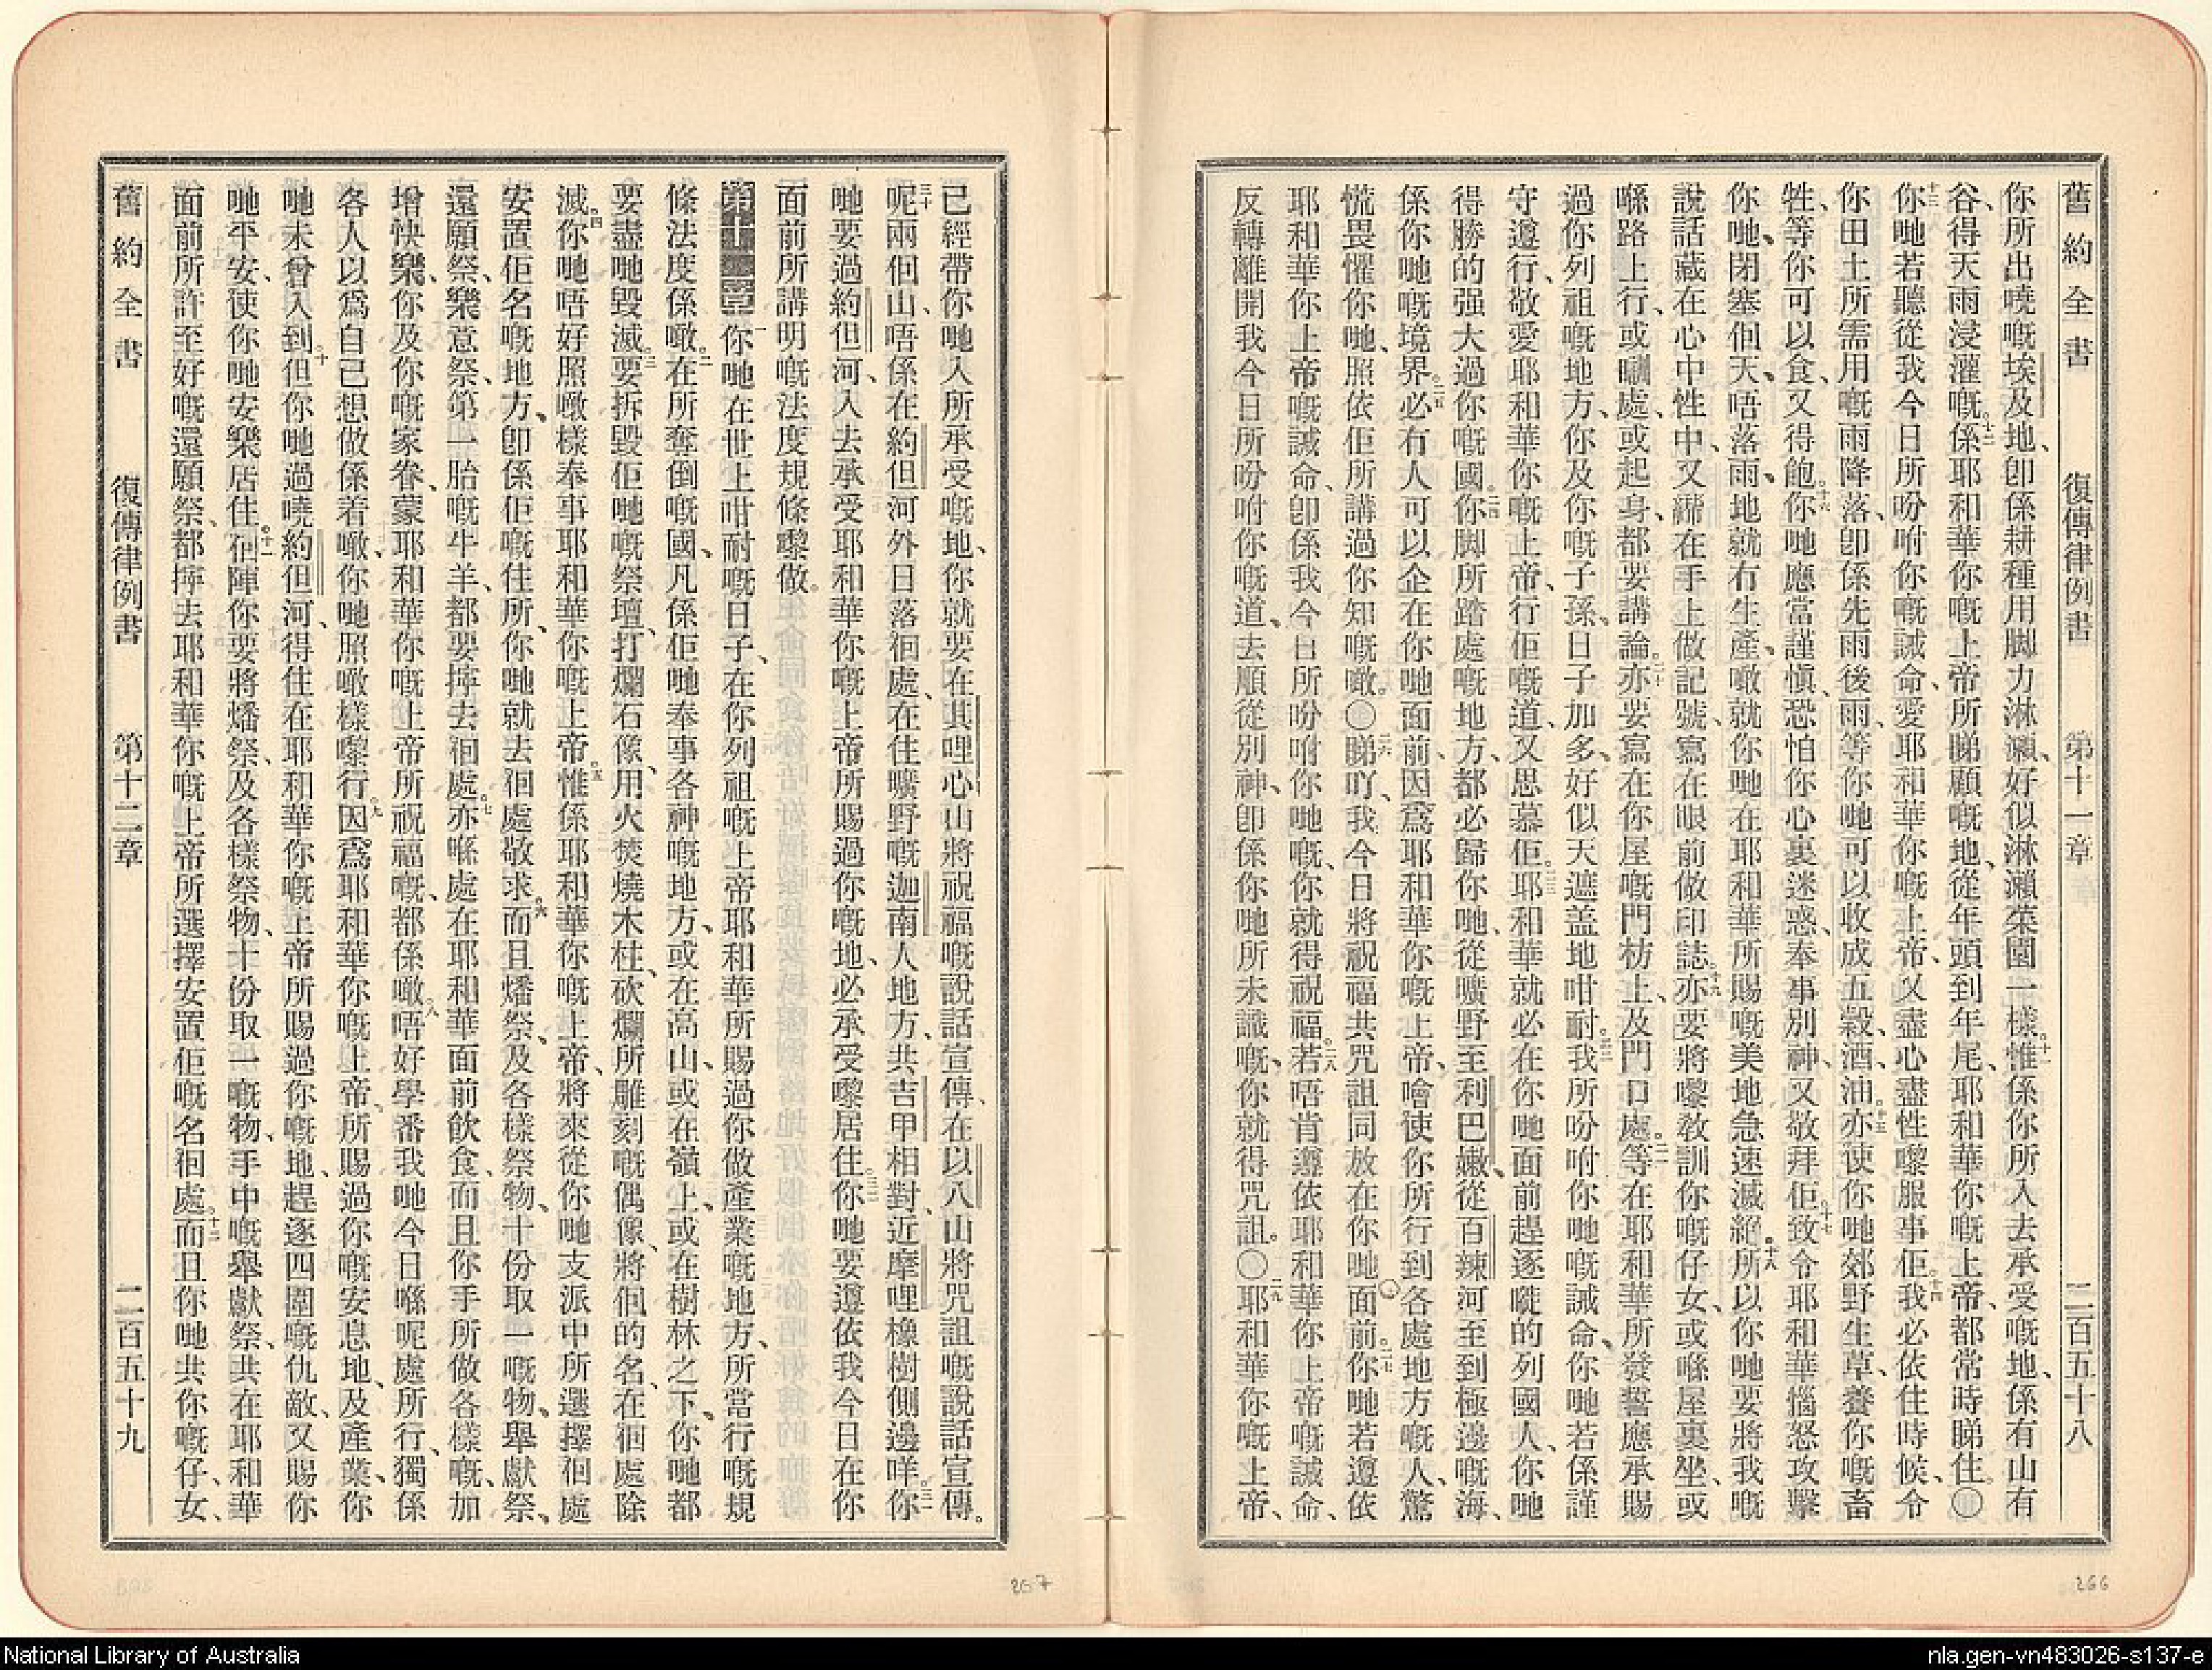 舊約全書 復傳律例書 第十一章 二百五十八
你所出嘵嘅埃及地、卽係耕種用脚力淋灑、好似淋灑菜園一樣。十一惟係你所入去承受嘅地、係有山有
谷、得天雨浸灌嘅。十二係耶和華你嘅上帝所睇顧嘅地、從年頭到年尾、耶和華你嘅上帝、都常時睇住。〇
十三你哋若聽從我今日所吩咐你嘅誡命、愛耶和華你嘅上帝、又盡心盡性嚟服事佢、十四我必依住時候、令
你田土所需用嘅雨降落、卽係先雨後雨、等你哋可以收成五穀、酒、油。十五亦使你哋郊野生草、養你嘅畜
牲、等你可以食、又得飽。十六你哋應當謹愼、恐怕你心裏迷惑、奉事別神、又敬拜佢、十七致令耶和華惱怒攻擊
你哋、閉塞個天、唔落雨、地就冇生產、噉就你哋在耶和華所賜嘅美地急速滅絕。十八所以你哋要將我嘅
說話藏在心中性中、又縛在手上做記號、寫在眼前做印誌。十九亦要將嚟敎訓你嘅仔女、或喺屋裏坐、或
喺路上行、或瞓處、或起身、都要講論。二十亦要寫在你屋嘅門枋上、及門口處。二一等在耶和華所發誓應承賜
過你列祖嘅地方、你及你嘅子孫、日子加多、好似天遮盖地咁耐。二二我所吩咐你哋嘅誡命、你哋若係謹
守遵行、敬愛耶和華你嘅上帝、行佢嘅道、又思慕佢。二三耶和華就必在你哋面前趕逐嘵的列國人、你哋
得勝的强大過你嘅國。二四你脚所踏處嘅地方、都必歸你哋、從曠野至利巴嫩、從百辣河至到極邊嘅海、
係你哋嘅境界。二五必冇人可以企在你哋面前、因爲耶和華你嘅上帝、噲使你所行到各處地方嘅人、驚
慌畏懼你哋、照依佢所講過你知嘅噉。〇二六睇吖、我今日將祝福共咒詛、同放在你哋面前。二七你哋若遵依
耶和華你上帝嘅誡命、卽係我今日所吩咐你哋嘅、你就得祝福。二八若唔肯遵依耶和華你上帝嘅誡命、
反轉離開我今日所吩咐你嘅道、去順從別神、卽係你哋所未識嘅、你就得咒詛。〇二九耶和華你嘅上帝、
266
已經帶你哋入所承受嘅地、你就要在其哩心山將祝福嘅說話宣傳、在以八山將咒詛嘅說話宣傳。
三十呢兩個山、唔係在約但河外日落徊處、在住曠野嘅迦南人地方、共吉甲相對、近摩哩橡樹側邊咩。三一你
哋要過約但河、入去承受耶和華你嘅上帝所賜過你嘅地、必承受嚟居住。三二你哋要遵依我今日在你
面前所講明嘅法度規條嚟做。
第十二章 一你哋在世上咁耐嘅日子、在你列祖嘅上帝耶和華所賜過你做產業嘅地方、所當行嘅規
條法度係噉。二在所奪倒嘅國、凡係佢哋奉事各神嘅地方、或在高山、或在嶺上、或在樹林之下、你哋都
要盡哋毀滅。三要拆毀佢哋嘅祭壇、打爛石像、用火焚燒木柱、砍爛所雕刻嘅偶像、將個的名、在徊處除
滅。四你哋唔好照噉樣奉事耶和華你嘅上帝。五惟係耶和華你嘅上帝、將來從你哋支派中所選擇徊處
安置佢名嘅地方、卽係佢嘅住所、你哋就去徊處敬求。六而且燔祭、及各樣祭物、十份取一嘅物、舉獻祭、
還願祭、樂意祭、第一胎嘅牛羊、都要擰去徊處。七亦喺處在耶和華面前飲食、而且你手所做各樣嘅、加
增快樂、你及你嘅家眷、蒙耶和華你嘅上帝所祝福嘅、都係噉。八唔好學番我哋今日喺呢處所行、獨係
各人以爲自己想做係着噉、你哋照噉樣嚟行。九因爲耶和華你嘅上帝、所賜過你嘅安息地、及產業、你
哋未曾入到。十但你哋過嘵約但河、得住在耶和華你嘅上帝所賜過你嘅地、趕逐四圍嘅仇敵、又賜你
哋平安、使你哋安樂居住。十一徊陣你要將燔祭、及各樣祭物、十份取一嘅物、手中嘅舉獻祭、共在耶和華
面前所許至好嘅還願祭、都擰去耶和華你嘅上帝所選擇安置佢嘅名徊處。十二而且你哋共你嘅仔、女、
舊約全書 復傳律例書 第十二章 二百五十九
267
National Library of Australia
nla.gen-vn483026-s137-e